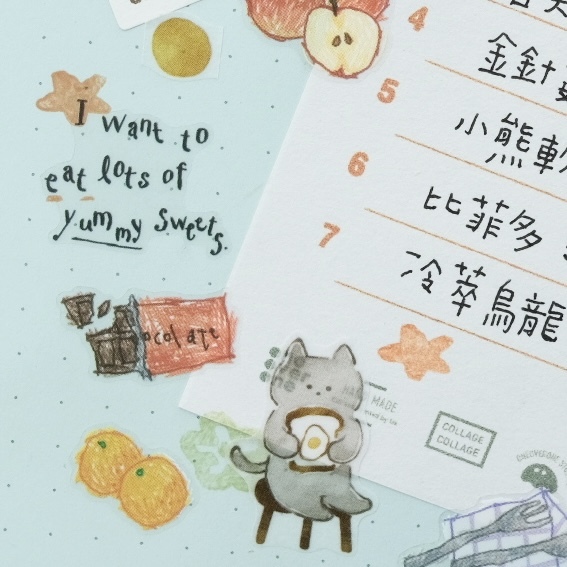 I want to
eat lots of
yummy sweets.
chocolate
4
5 金針
6 小熊軟
7 比菲多
冷萃烏龍
HAND MADE
COLLAGE
COLLAGE